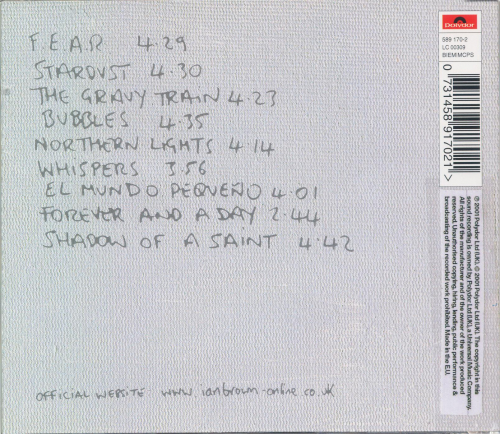 F.E.A.R 4.29
STARDUST 4.30
THE GRAVY TRAIN 4.23
BUBBLES 4.35
NORTHERN LIGHTS 4.14
WHISPERS 3.56
EL MUNDO PEQUEÑO 4.01
FOREVER AND A DAY 2.44
SHADOW OF A SAINT 4.42
OFFICIAL WEBSITE www.ianbrown-online.co.uk
Polydor
589 170-2
LC 00309
BIEM/MCPS
0 731458 917021 >
℗ 2001 Polydor Ltd (UK). © 2001 Polydor Ltd (UK). The copyright in this
sound recording is owned by Polydor Ltd (UK), a Universal Music Company.
All rights of the manufacturer and of the owner of the work produced
reserved. Unauthorised copying, hiring, lending, public performance &
broadcasting of the recorded work prohibited. Made in the E.U.